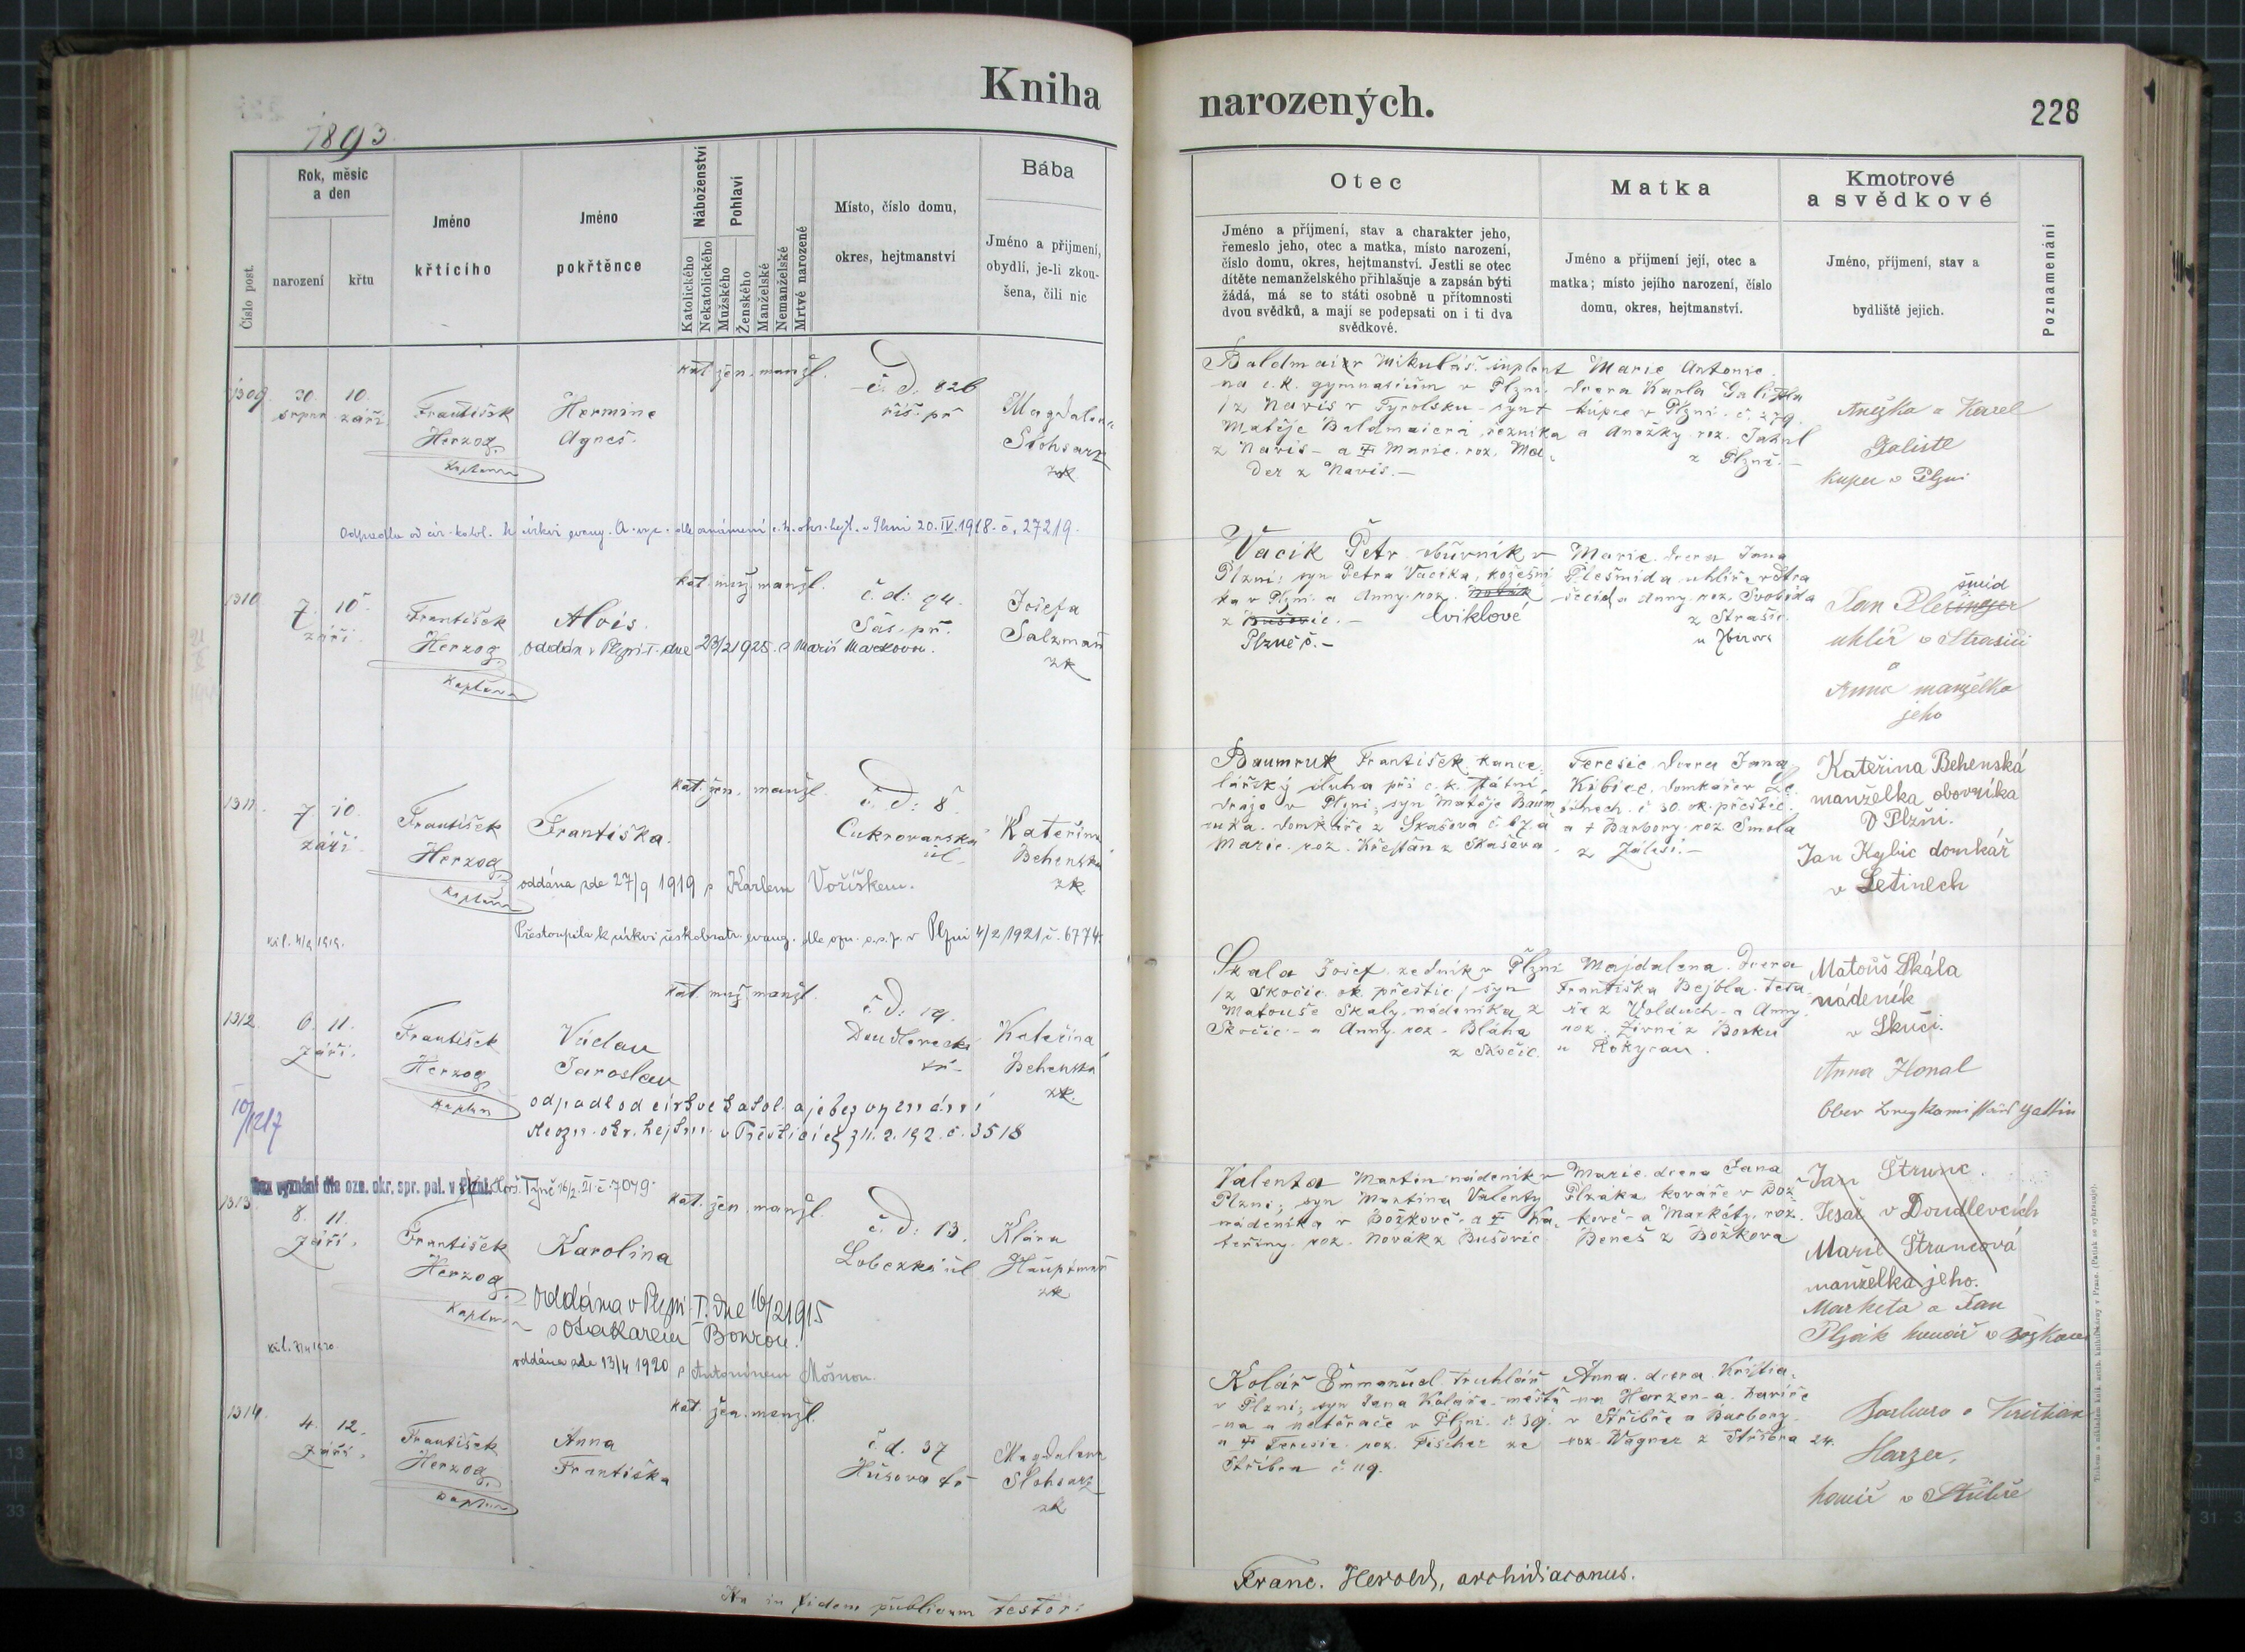 Kniha
narozených.
228
1893.
Číslo post.
Rok, měsíc
a den
narození
křtu
Jméno
křticího
Jméno
pokřtěnce
Náboženství
Katolického
Nekatolického
Pohlaví
Mužského
Ženského
Manželské
Nemanželské
Mrtvé narozené
Místo, číslo domu,
okres, hejtmanství
Bába
Jméno a přijmení,
obydlí, je-li zkou-
šena, čili nic
Otec
Jméno a příjmení, stav a charakter jeho,
řemeslo jeho, otec a matka, místo narození,
číslo domu, okres, hejtmanství. Jestli se otec
dítěte nemanželského přihlašuje a zapsán býti
žádá, má se to státi osobně u přítomnosti
dvou svědků, a mají se podepsati on i ti dva
svědkové.
Matka
Jméno a přijmení její, otec a
matka; místo jejího narození, číslo
domu, okres, hejtmanství.
Kmotrové
a svědkové
Jméno, příjmení, stav a
bydliště jejich.
Poznamenání
1309.
30. 10.
srpna září
František
Herzog
Kaplan
Hermine
Agnes.
kat. žen. manžl.
č. d: 826
říš. př
Magdalena
Slohsarz
zk
Mikuláš. suplent
na c. k. gymnasium v Plzni.
/z Navis v Tyrolsku - syn †
řezníka
z Navis - a † Marie. roz. Ma-
der z Navis. -
Marie Antonie.
dcera Karla
kupce v Plzni. č. 279.
a Anežky roz.
z Plzně. -
Anežka a Karel
Galistl
kupec v Plzni
Odpadla od cír. katol. k církvi evang. A. vyz. dle oznámení c. k. okr. hejt. v Plzni 20. IV. 1918. č. 27219.
1310
7. 10.
září
František
Herzog
Kaplan
Alois.
kat. muž. manžl.
č. d: 94.
Sas. př.
Josefa
Salzman
zk
oddán v Plzni I. dne 23/2 1925. s Marií Markovou.
Vacik Petr obuvník v
Plzni; syn Petra Vacika, kožešní-
ka v Plzni. a Anny. roz. Novák
z Bušovic. - Cviklové
Plzně č. -
Marie. dcera Jana
Plešmida uhlíře v Stra
šicích a Anny. roz. Svoboda
z Strašic.
u Zbirova
Jan Plesinger
šmid
uhlíř v Strašici
a
Anna manželka
jeho
1311.
7. 10.
září.
František
Herzog
Kaplan
Františka.
kat. žen. manžl.
č. d: 8.
Cukrovarská
ul.
Kateřina
Behenská
zk
oddána zde 27/9 1919 s Karlem Voříškem.
Přestoupila k církvi českobratr. evang. dle ozn. o. s. p. v Plzni 4/2 1921, č. 6774.
Baumruk František. kance-
lářský sluha při c. k. státní
dráze v Plzni; syn Matěje Baum
ruka. domkáře z Skašova č. 67. a
Marie. roz. Křesťan z Skašova.
Teresie. dcera Jana
Kibice. domkáře v Le-
tinech. č. 30. ok. přeštic.
a † Barbory. roz. Smola
z Zálesí. -
Kateřina Behenská
manželka obovníka
v Plzni.
Jan Kybic domkář
v Letinech
1312.
6. 11.
září.
František
Herzog
Kaplan
Václav
Jaroslav
kat. muž. manžl.
č. d: 19.
Doudlevecká
tř.
Kateřina
Behenská
zk.
odpadl od církve katol. a je bez vyznání
dle ozn. okr. hejtm. v Přešticích
Skala Josef. zedník v Plzni
/z Skočic. ok. přeštic/ syn
Matouše Skaly, nádeníka z
Skočic - a Anny. roz. Bláha
z Skočic.
Majdalena. dcera
Františka Bejbla. tesa-
ře z Volduch - a Anny.
roz. Živní z Borku
u Rokycan.
Matouš Skála
nádeník
v Skoči.
Anna Honal
Bez vyznání dle ozn. okr. spr. pol. v Plzni. Hor. Týně 16/2. 21 č. 7049.
1313.
8. 11.
září.
František
Herzog
Kaplan
Karolina
kat. žen. manžl.
č. d: 13.
Lobezká ul
Klára
Hauptman
zk
oddána v Plzni I. dne 16/2 1915
s Otakarem
oddána zde 13/4 1920 s Antonínem Mošnou.
Valenta Martin nádeník v
Plzni; syn Martina Valenty
nádeníka v Božkově - a † Ka-
teřiny. roz. Novák z Bušovic
Marie. dcera Jana
Plzáka kováře v Bož-
kově - a Markéty. roz.
Beneš z Božkova
Jan Strunc
Tesař v Doudlevcích
Marie Struncová
manželka jeho.
Marketa a Jan
Plzák kovář v Božkově
1314.
4. 12.
září.
František
Herzog
Kaplan
Anna
Františka
kat. žen. manžl.
č. d. 37
Husova tř
Magdalena
Slohsarz
zk
Kolář Emmanuel. truhlář
v Plzni; syn Jana Koláře. měšťa-
na a natěrače v Plzni. č. 39.
a † Teresie. roz. Fischer ze
Stříbra č. 119.
Anna. dcera. Kristia-
na Harzer - a. kováře
v Stříbře a Barbory.
roz. Wagner z Stříbra 24.
Barbara a Kristian
Harzer,
kovář v Stříbře
Ita in fidem publicam testor:
Franc. Herold, archidiaconus.